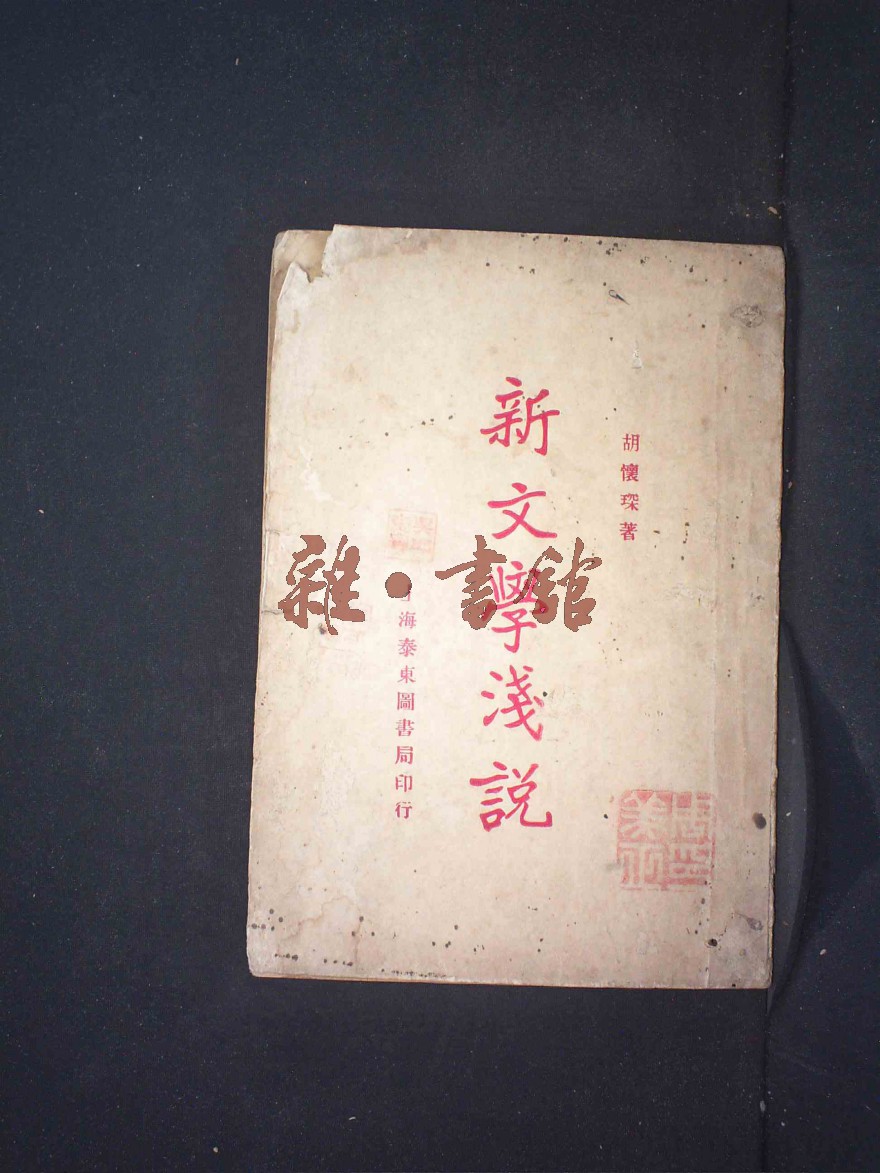 胡懷琛著
新文學淺説
海泰東圖書局印行
雜·書館